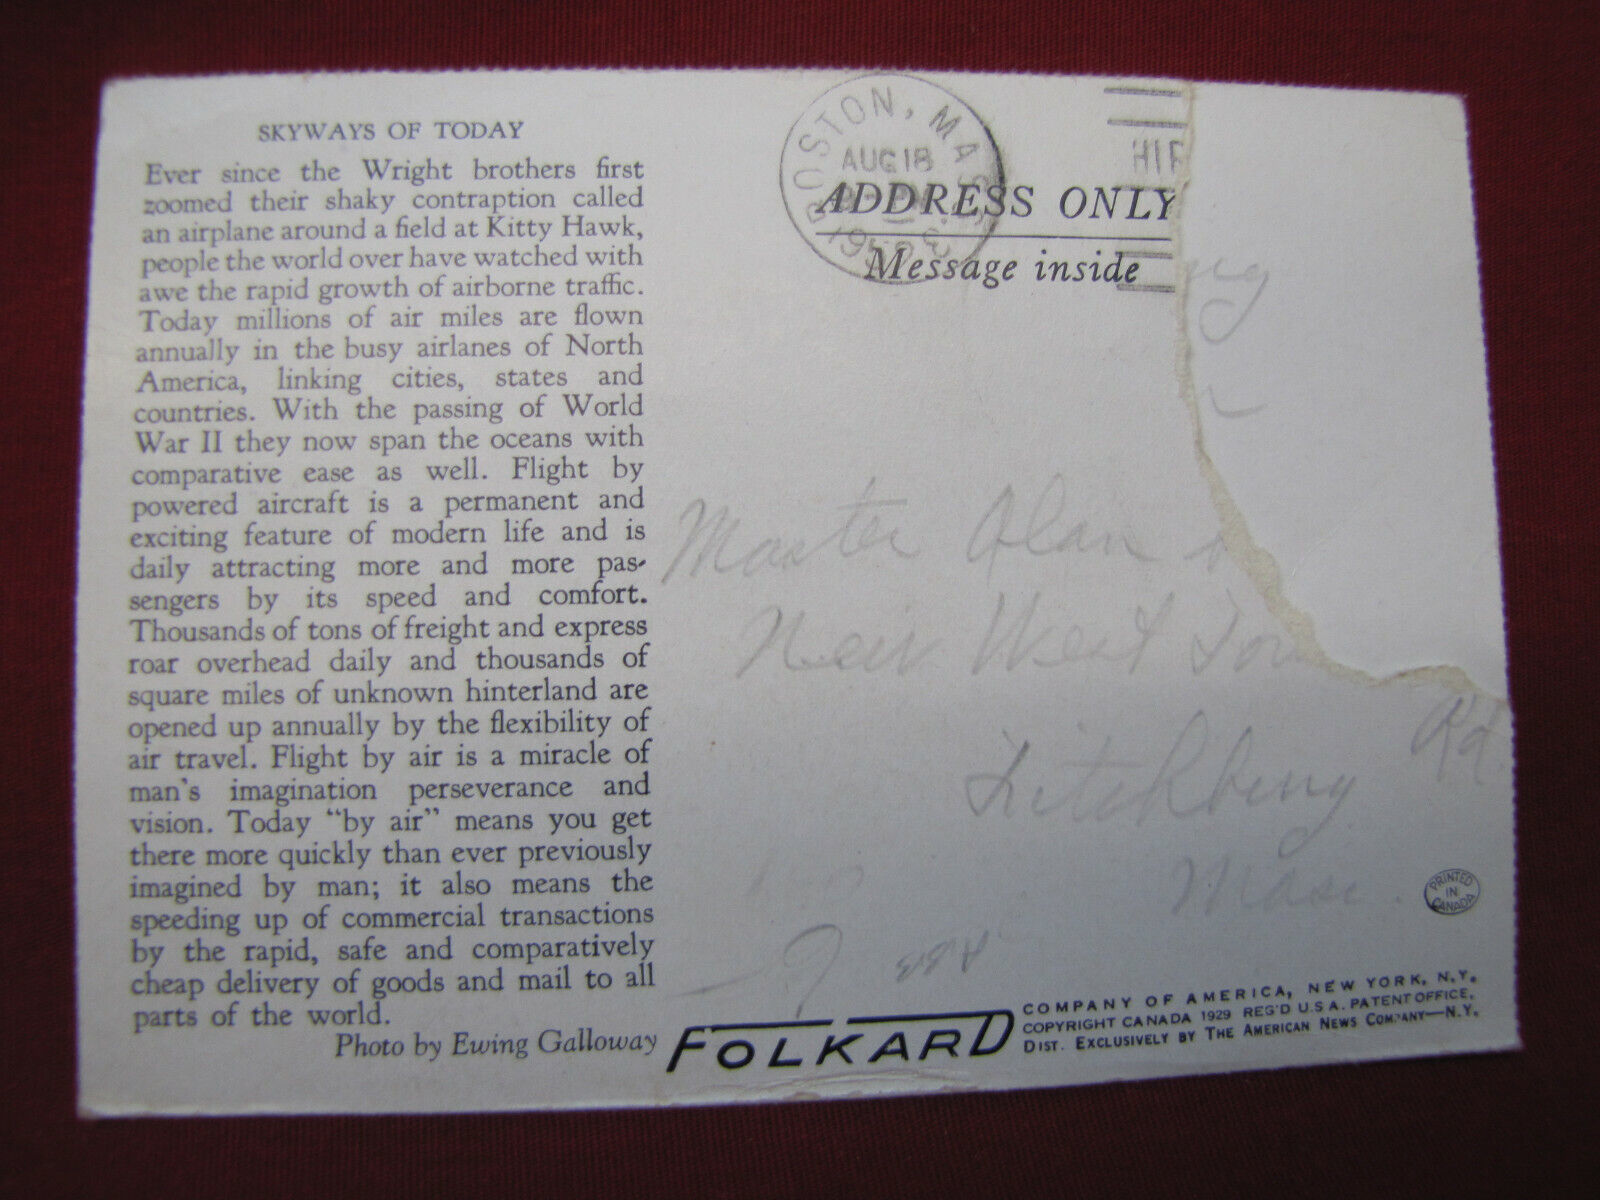 SKYWAYS OF TODAY
Ever since the Wright brothers first
zoomed their shaky contraption called
an airplane around a field at Kitty Hawk,
people the world over have watched with
awe the rapid growth of airborne traffic.
Today millions of air miles are flown
annually in the busy airlanes of North
America, linking cities, states and
countries. With the passing of World
War II they now span the oceans with
comparative ease as well. Flight by
powered aircraft is a permanent and
exciting feature of modern life and is
daily attracting more and more pas-
sengers by its speed and comfort.
Thousands of tons of freight and express
roar overhead daily and thousands of
square miles of unknown hinterland are
opened up annually by the flexibility of
air travel. Flight by air is a miracle of
man's imagination perseverance and
vision. Today "by air" means you get
there more quickly than ever previously
imagined by man; it also means the
speeding up of commercial transactions
by the rapid, safe and comparatively
cheap delivery of goods and mail to all
parts of the world.
Photo by Ewing Galloway
BOSTON, MASS.
AUG 18
ADDRESS ONLY
Message inside
Master Alan
West
Rd.
Fitchburg
Mass.
PRINTED
IN
CANADA
FOLKARD
COMPANY OF AMERICA, NEW YORK, N.Y.
COPYRIGHT CANADA 1929 REG'D U.S.A. PATENT OFFICE.
DIST. EXCLUSIVELY BY THE AMERICAN NEWS COMPANY—N.Y.